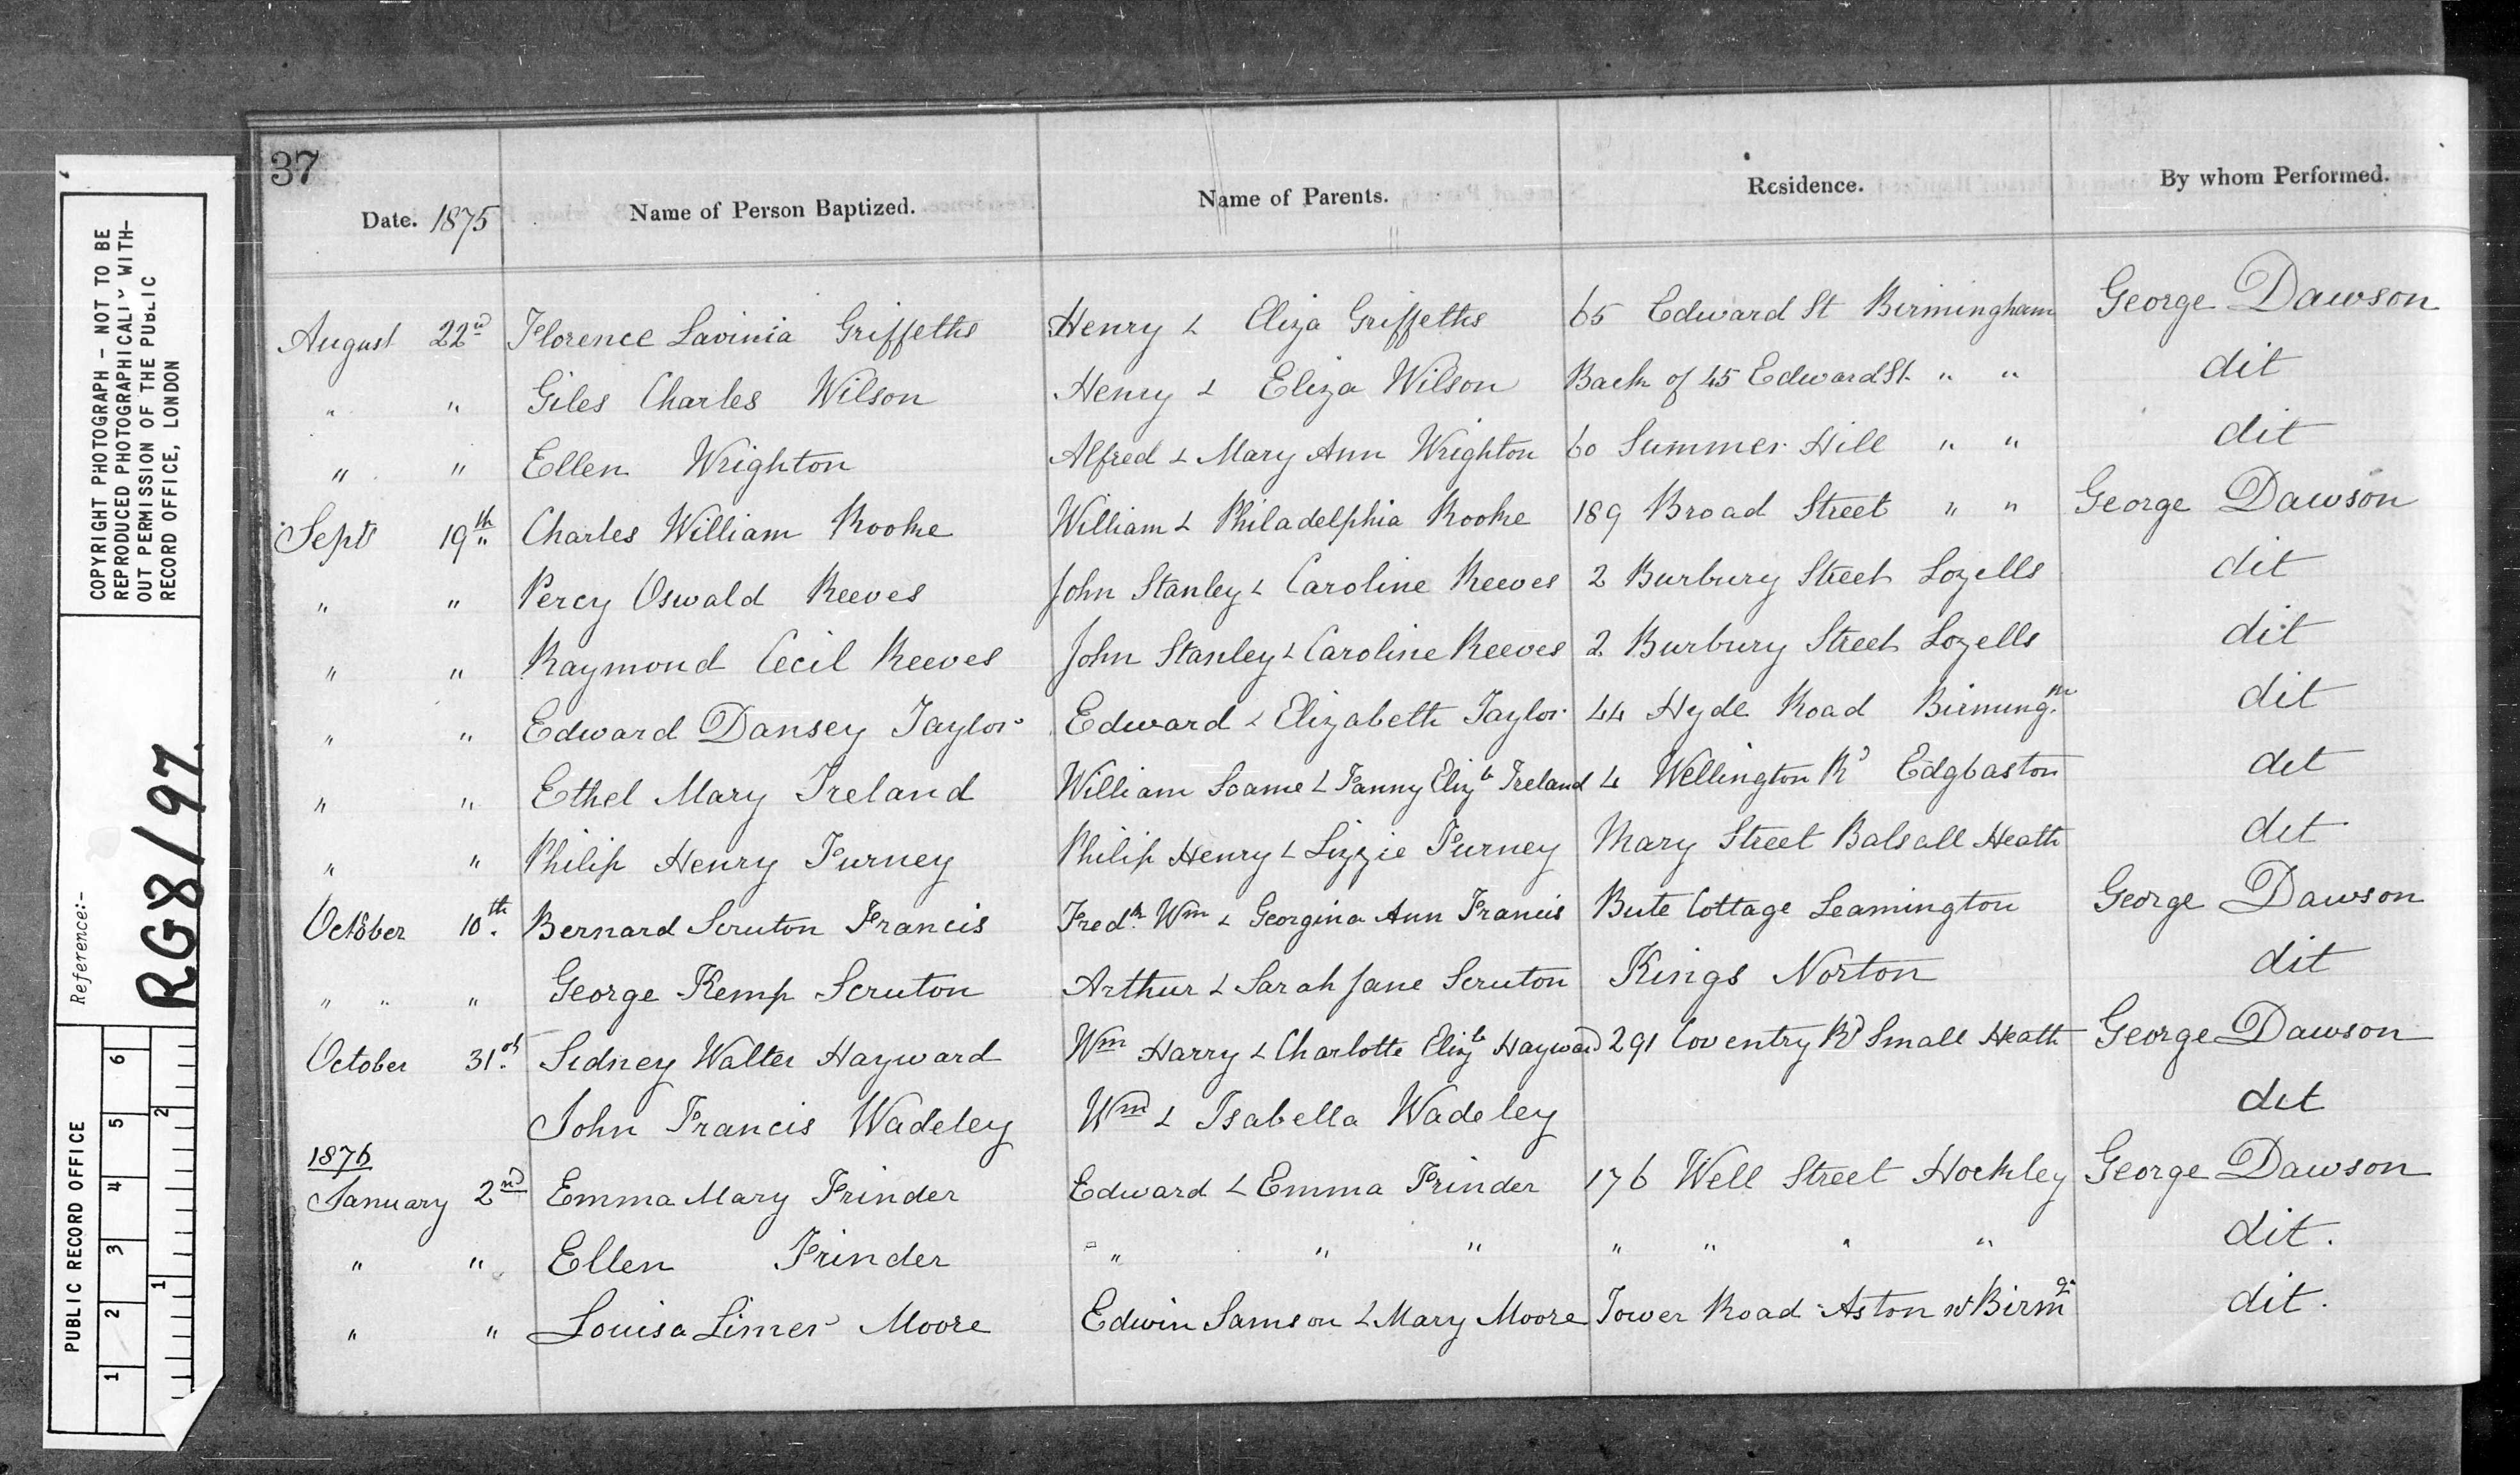 COPYRIGHT PHOTOGRAPH – NOT TO BE
REPRODUCED PHOTOGRAPHICALLY WITH-
OUT PERMISSION OF THE PUBLIC
RECORD OFFICE, LONDON
Reference:-
RG8/97
PUBLIC RECORD OFFICE
1 2 3 4 5 6
1 2
37
Date. 1875 Name of Person Baptized. Name of Parents. Residence. By whom Performed.
August 22nd Florence Lavinia Griffeths Henry & Eliza Griffeths 65 Edward St Birmingham George Dawson
" " Giles Charles Wilson Henry & Eliza Wilson Back of 45 Edward St. " " dit
" " Ellen Wrighton Alfred & Mary Ann Wrighton 60 Summer Hill " " dit
Sept 19th Charles William Rooke William & Philadelphia Rooke 189 Broad Street " " George Dawson
" " Percy Oswald Reeves John Stanley & Caroline Reeves 2 Burbury Street Lozells dit
" " Raymond Cecil Reeves John Stanley & Caroline Reeves 2 Burbury Street Lozells dit
" " Edward Dansey Taylor Edward & Elizabeth Taylor 44 Hyde Road Birmingm dit
" " Ethel Mary Ireland William Soame & Fanny Elizth Ireland 4 Wellington Rd Edgbaston dit
" " Philip Henry Furney Philip Henry & Lizzie Furney Mary Street Balsall Heath dit
October 10th. Bernard Scruton Francis Fredk. Wm & Georgina Ann Francis Bute Cottage Leamington George Dawson
" " " George Kemp Scruton Arthur & Sarah Jane Scruton Kings Norton dit
October 31st. Sidney Walter Hayward Wm Harry & Charlotte Elizth Hayward 291 Coventry Rd Small Heath George Dawson
John Francis Wadeley Wm & Isabella Wadeley dit
1876
January 2nd Emma Mary Frinder Edward & Emma Frinder 176 Well Street Hockley George Dawson
" " Ellen Frinder " " " " " " " dit.
" " Louisa Limer Moore Edwin Samson & Mary Moore Tower Road Aston Birm dit.